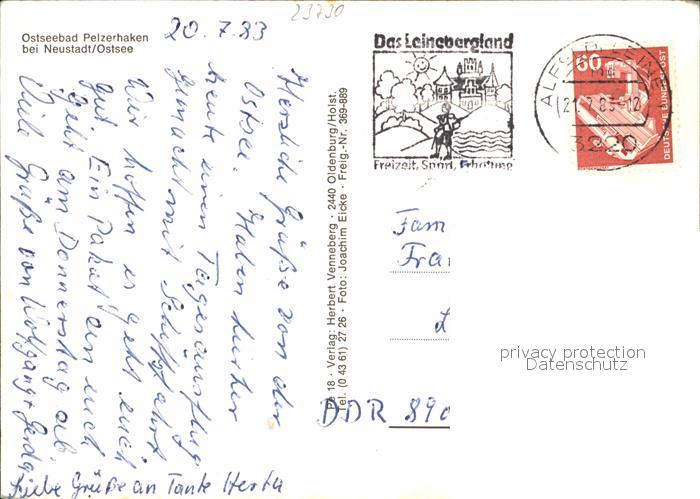 23730
Ostseebad Pelzerhaken
bei Neustadt/Ostsee
20.7.83
Herzliche Grüße von der
Ostsee. Haben bisher
heute einen Tagesausflug
gemacht mit Schiffahrt
Wir hoffen es geht euch
gut. Ein Paket an euch
geht am Donnerstag ab.
Viele Grüße von Wolfgang + Gerda
Liebe Grüße an Tante Herta
Pe 18 · Verlag: Herbert Venneberg · 2440 Oldenburg/Holst.
Tel. (0 43 61) 27 26 · Foto: Joachim Eicke · Freig.-Nr. 369-889
Das Leinebergland
Freizeit, Sport, Erholung
ALFELD, LEINE
21.7.83-12
3220
60
DEUTSCHE BUNDESPOST
Fam
Fra
DDR 890
privacy protection
Datenschutz